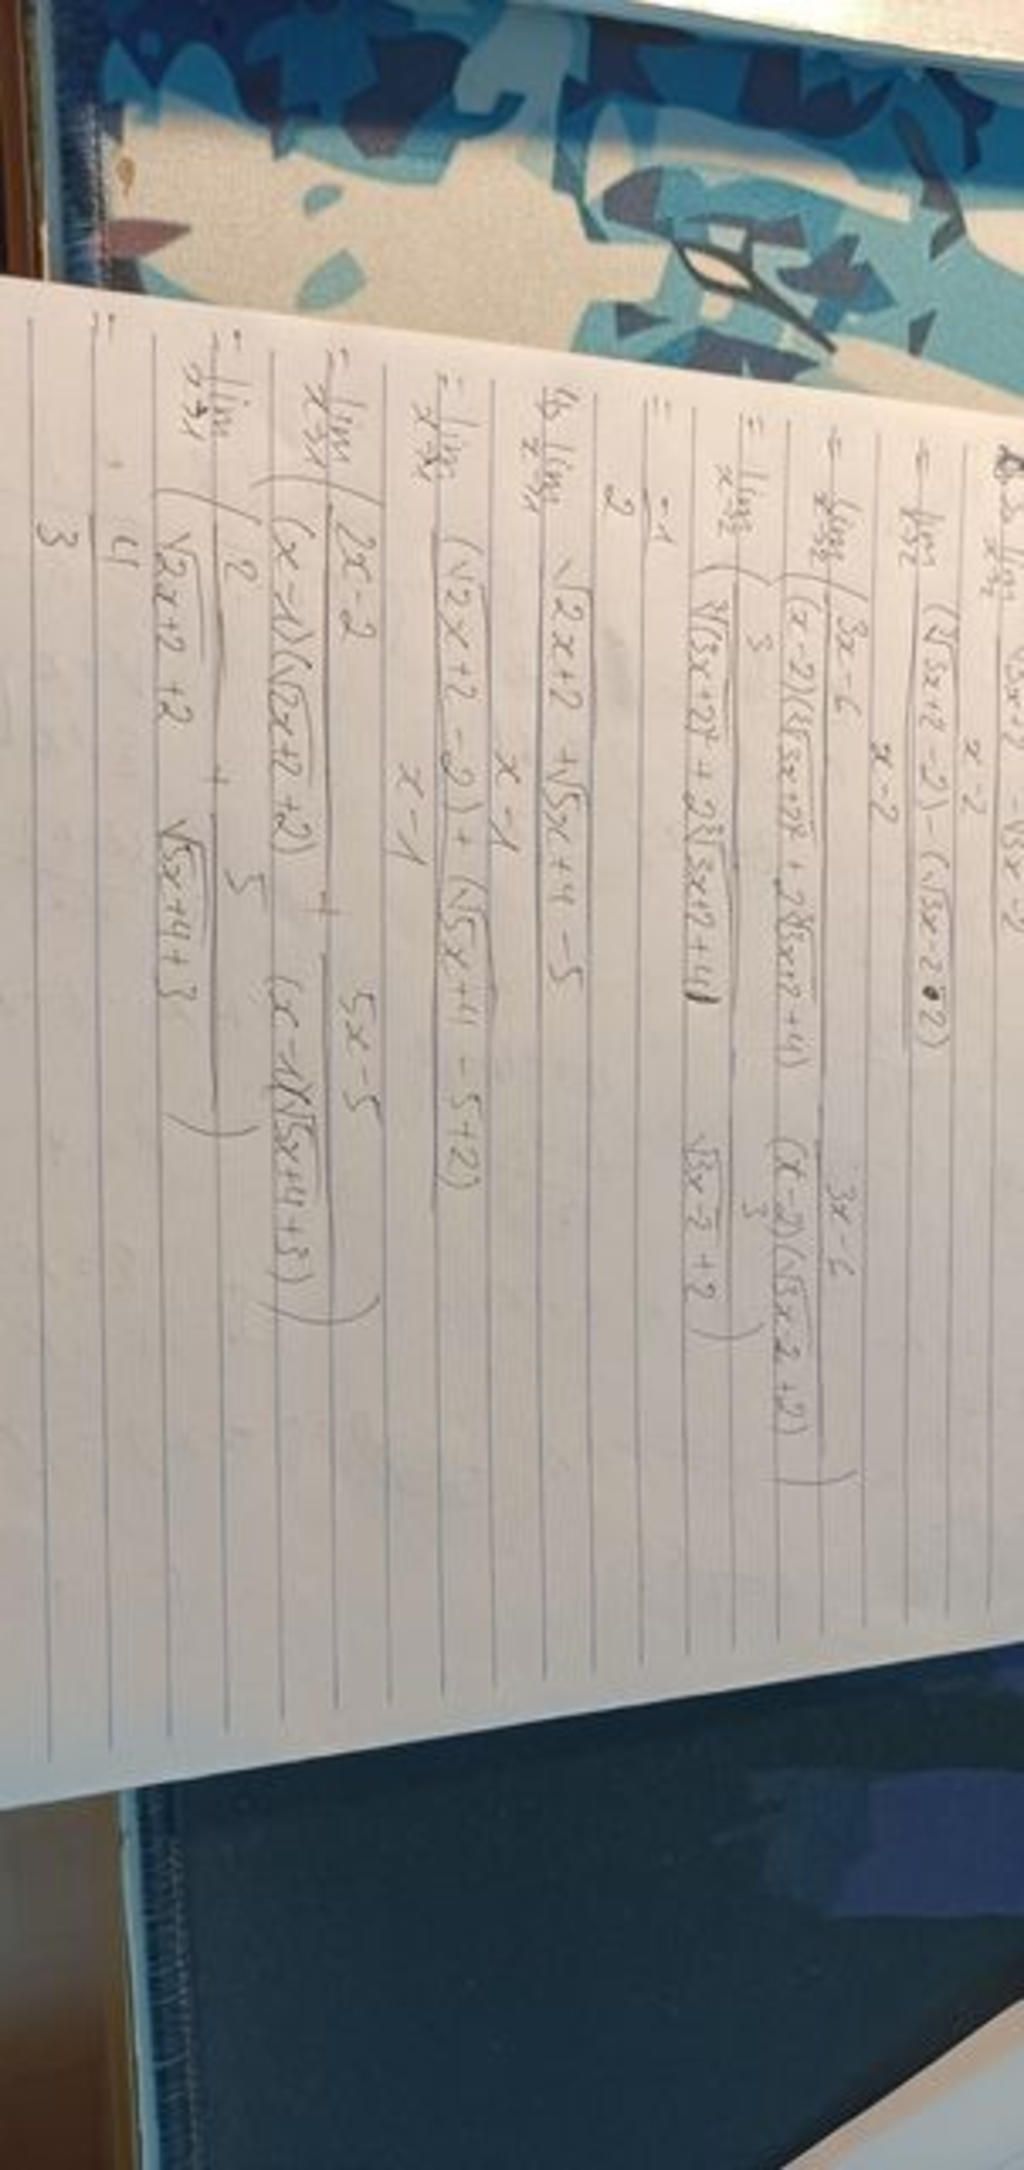 lim x→2 ∛3x+2 - √3x-2 / x-2
= lim x→2 (∛3x+2 - 2) - (√3x-2 - 2) / x-2
= lim x→2 ( 3x-6 / (x-2)(∛(3x+2)² + 2∛3x+2 + 4) 3x-6 / (x-2)(√3x-2 + 2) )
= lim x→2 ( 3 / ∛(3x+2)² + 2∛3x+2 + 4 3 / √3x-2 + 2 )
= -1 / 2
lim x→1 √2x+2 + √5x+4 - 5 / x-1
= lim x→1 (√2x+2 - 2) + (√5x+4 - 5+2) / x-1
= lim x→1 ( 2x-2 / (x-1)(√2x+2 + 2) + 5x-5 / (x-1)(√5x+4+3) )
= lim x→1 ( 2 / √2x+2 + 2 + 5 / √5x+4+3 )
= 4 / 3